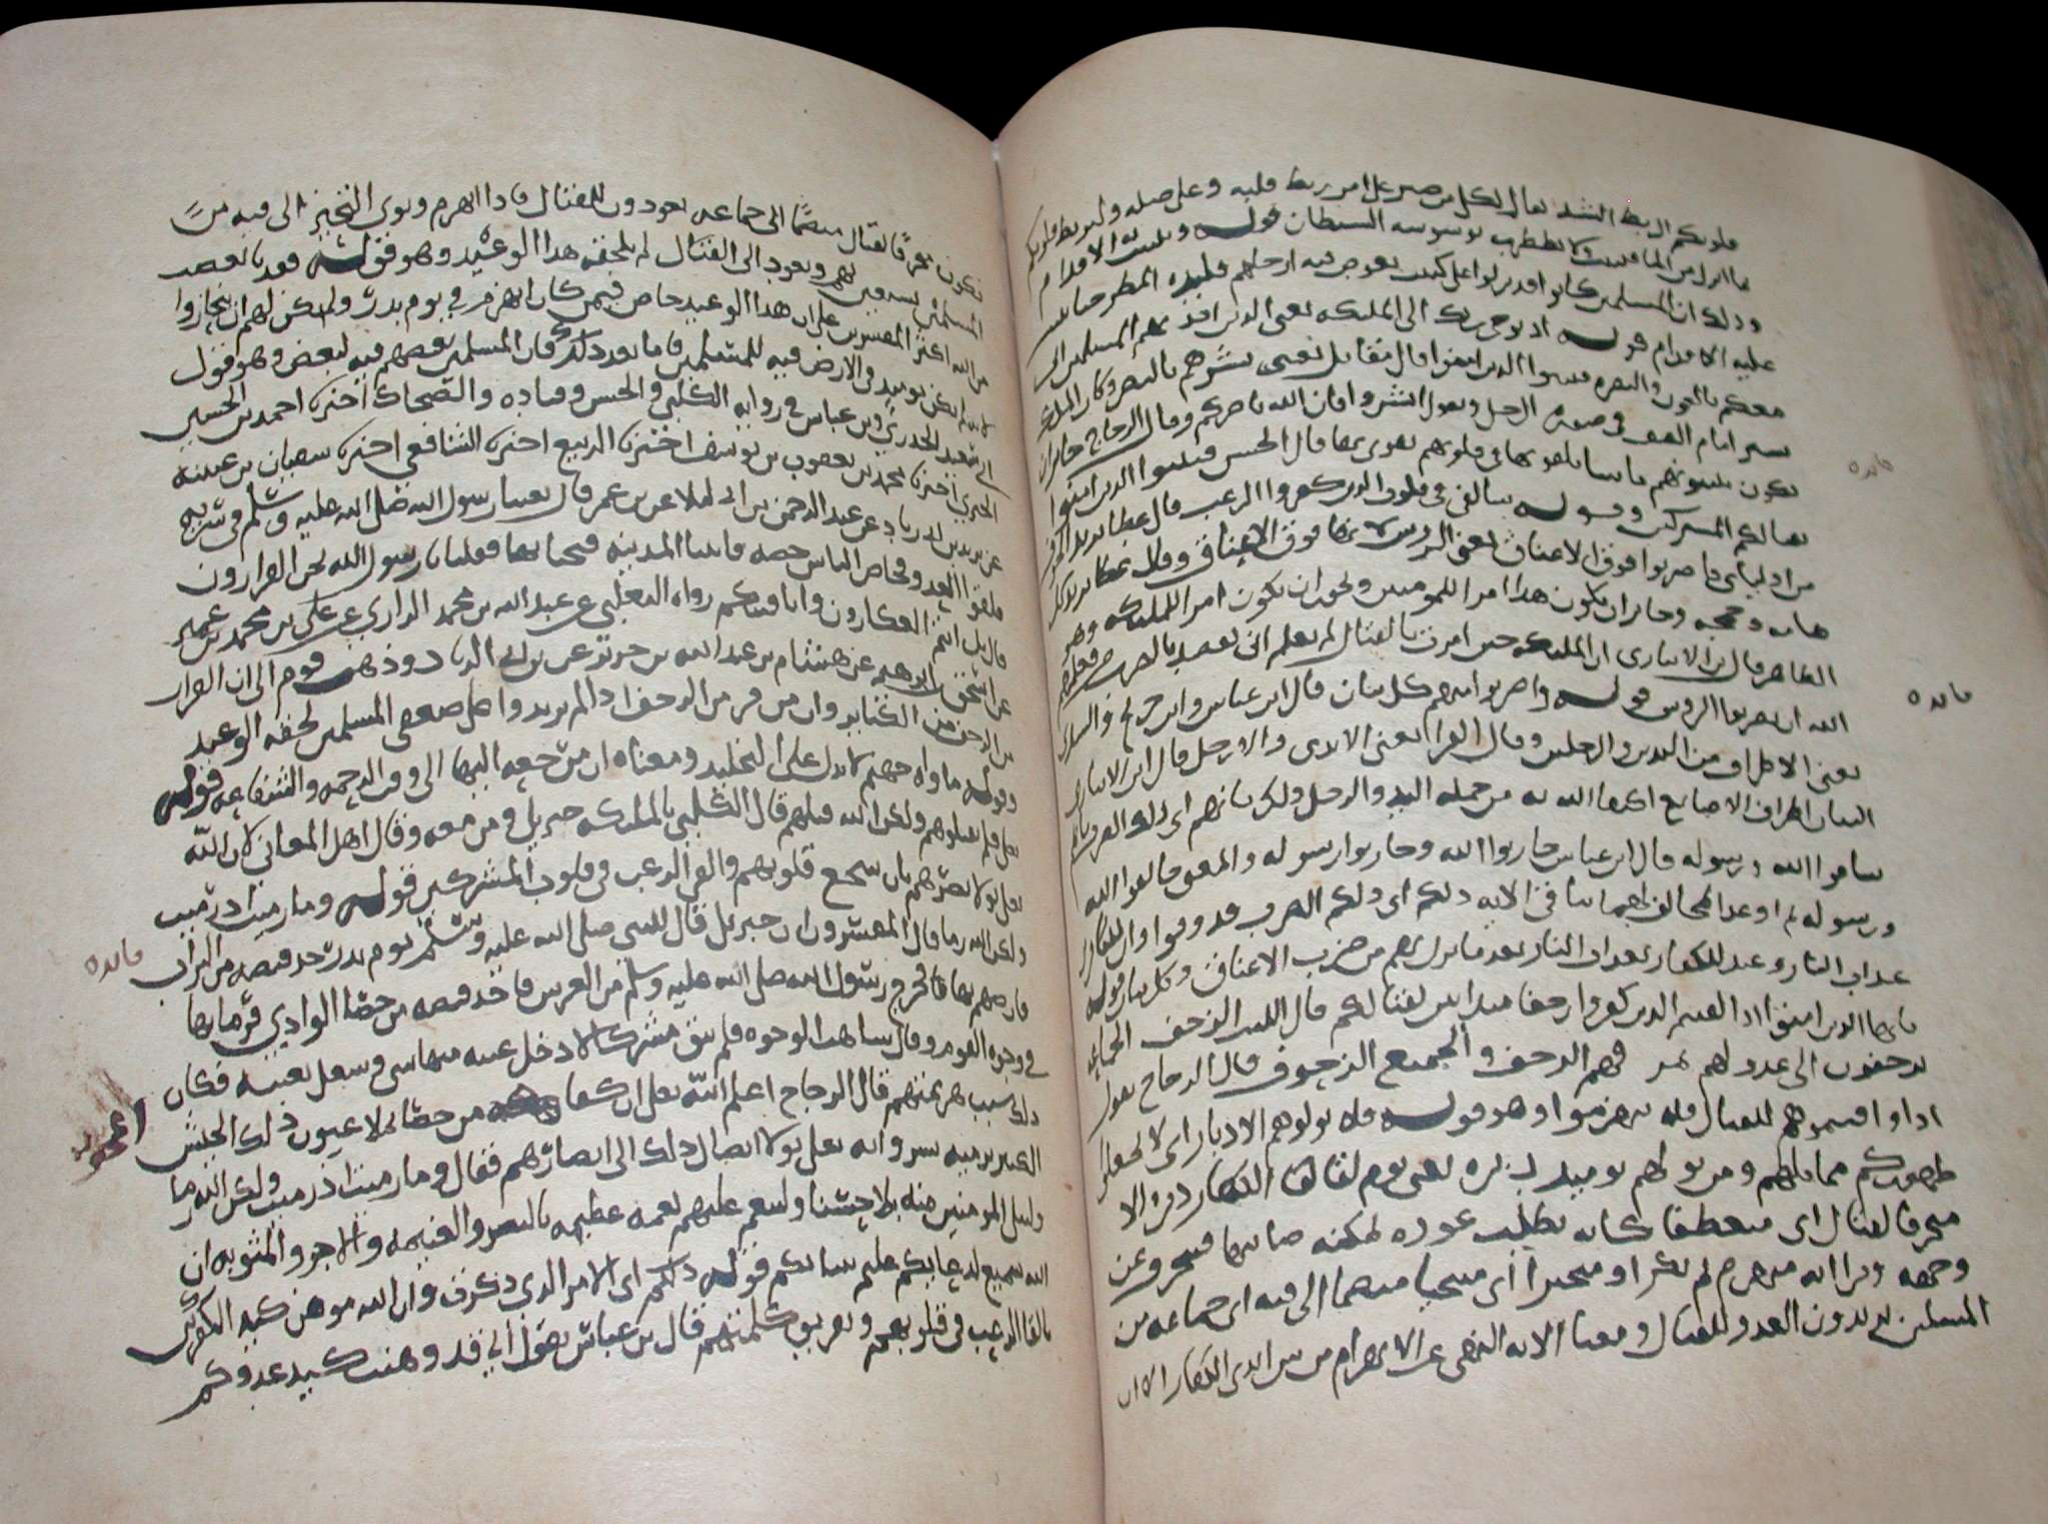 قلوبكم الربط الشد يقال لكل من صبر على امر ربط قلبه وعلى صله وليربط قلوبكم
ما انزل من الما فيثبت ولا يضطرب بوسوسه الشيطان قوله ويثبت به الاقدام
وذلك ان المسلمين كانوا قد نزلوا على كثيب يغوص فيه ارجلهم فلبده المطر حتى ثبتت
عليه الاقدام قوله اذ يوحي ربك الى الملايكه يعنى الذين امد بهم المسلمين انى
معكم بالعون والنصره فثبتوا الذين امنوا قال مقاتل يعنى بشروهم بالنصر وكان الملك
يسير امام الصف في صوره الرجل ويقول ابشروا فان الله ناصركم وقال الزجاج جايز ان
يكون يثبتونهم باشيا يلقونها في قلوبهم تقوى بها قال الحسن فثبتوا الذين امنوا
بقتالكم المشركين وقوله سالقى في قلوب الذين كفروا الرعب قال عطا يريد الخوف
من اوليائى فاضربوا فوق الاعناق يعنى الروس لانها فوق الاعناق وقال عطا يريد كل
هامه وجمجمه وجايز ان يكون هذا امرا للمومنين ويجوز ان يكون امر الملايكه وهو
الظاهر قال ابن الانبارى ان الملايكه حين امرت بالقتال لم تعلم اين تقصد بالضرب فعلمهم
الله ان يضربوا الروس قوله واضربوا منهم كل بنان قال ابن عباس وابن جريج والسدى
يعنى الاطراف من اليدين والرجلين وقال الفرا يعنى الايدى والارجل قال ابن الانبارى
البنان اطراف الاصابع اكتفا الله به من جمله اليد والرجل ذلك بانهم اى ذلك الضرب بانهم
شاقوا الله ورسوله قال ابن عباس حاربوا الله وحاربوا رسوله والمعنى خالفوا الله
ورسوله ثم اوعد المخالف لهما بباقى الايه ذلكم اى ذلكم الضرب فذوقوا وان للكافرين
عذاب النار وعيد للكفار بعذاب النار بعد ما نزل بهم من ضرب الاعناق وكل بنان قوله
يايها الذين امنوا اذا لقيتم الذين كفروا زحفا متدانين لقتالكم قال الليث الزحف الجماعه
يزحفون الى عدو لهم بمره فهم الزحف والجميع الزحوف قال الزجاج يقول
اذا واقفتموهم للقتال فلا تنهزموا وهو قوله فلا تولوهم الادبار اى لا تجعلوا
ظهوركم مما يليهم ومن يولهم يوميذ دبره يعنى يوم لقا الكفار دبره الا
متحرفا لقتال اى منعطفا كانه يطلب عوره تمكنه اصابتها فينحرف عن
وجهه ويرا انه منهزم ثم يكر او متحيزا اى متنحيا منضما الى فيه اى جماعه من
المسلمين يريدون العدو للقتال ومعنا الايه النهى عن الانهزام من بين ايدى الكفار الا ان
فايده
فايده
يكون تحرفا لقتال منضما الى جماعه يعودون للقتال فاذا انهزم ونوى التحيز الى فيه من
المسلمين يستعين بهم ويعود الى القتال لم يلحقه هذا الوعيد وهو قوله فقد با بغضب
من الله اكثر المفسرين على ان هذا الوعيد خاص فيمن كان انهزم في يوم بدر ولم يكن لهم ان ينحازوا
لانه لم يكن يوميذ فى الارض فيه للمسلمين فاما بعد ذلك فان المسلمين بعضهم فيه لبعض وهو قول
ابى سعيد الخدري وابن عباس في روايه الكلبي والحسن وقتاده والضحاك اخبرنا احمد بن الحسين
الحيري اخبرنا محمد بن يعقوب بن يوسف اخبرنا الربيع اخبرنا الشافعي اخبرنا سفيان بن عيينه
عن يزيد بن ابى زياد عن عبد الرحمن بن ابى ليلا عن ابن عمر قال بعثنا رسول الله صلى الله عليه وسلم في سريه
فلقوا العدو فحاص الناس حيصه فاتينا المدينه فتخبانا بها فقلنا يا رسول الله نحن الفرارون
قال بل انتم العكارون وانا فئتكم رواه الثعلبي عن عبد الله بن محمد الرازي عن علي بن محمد بن عمير
عن اسحق بن ابرهيم عن هشام بن عبد الله عن جرير عن يزيد بن ابى الزياد وذهب قوم الى ان الفرار
من الزحف من الكباير وان من فر من الزحف اذا لم يزيدوا على ضعفى المسلمين لحقه الوعيد
وقوله ماواه جهنم لا يدل على التخليد ومعناه ان مرجعه اليها الى وقت الرحمه والشفاعه قوله
تعلى فلم تقتلوهم ولكن الله قتلهم قال الكلبي بالملايكه جبريل ومن معه وقال اهل المعانى لان الله
تعلى تولا نصرهم بان شجع قلوبهم والقى الرعب في قلوب المشركين قوله وما رميت اذ رميت
ولكن الله رما قال المفسرون ان جبريل قال للنبي صلى الله عليه وسلم يوم بدر خذ قبضه من التراب
فارمهم بها فخرج رسول الله صلى الله عليه وسلم من العريش فاخذ قبضه من حصا الوادي فرماهم بها
في وجوه القوم وقال شاهت الوجوه فلم يبق مشرك الا دخل عينه منها شى وشغل بعينيه فكان
ذلك سبب هزيمتهم قال الزجاج اعلم الله تعلى ان كفا من حصا لا يملا عيون ذلك الجيش
الكبير برميه بشر وانه تعلى تولا ايصال ذلك الى ابصارهم فقال وما رميت اذ رميت ولكن الله رما
وليبلى المومنين منه بلا حسنا ولينعم عليهم نعمه عظيمه بالنصر والغنيمه والاجر والمثوبه ان
الله سميع لدعايكم عليم بنياتكم قوله ذلكم اى الامر الذي ذكرت وان الله موهن كيد الكفرين
بالقا الرعب في قلوبهم وتفريق كلمتهم قال ابن عباس يقول انى قد وهنت كيد عدوكم
فايده